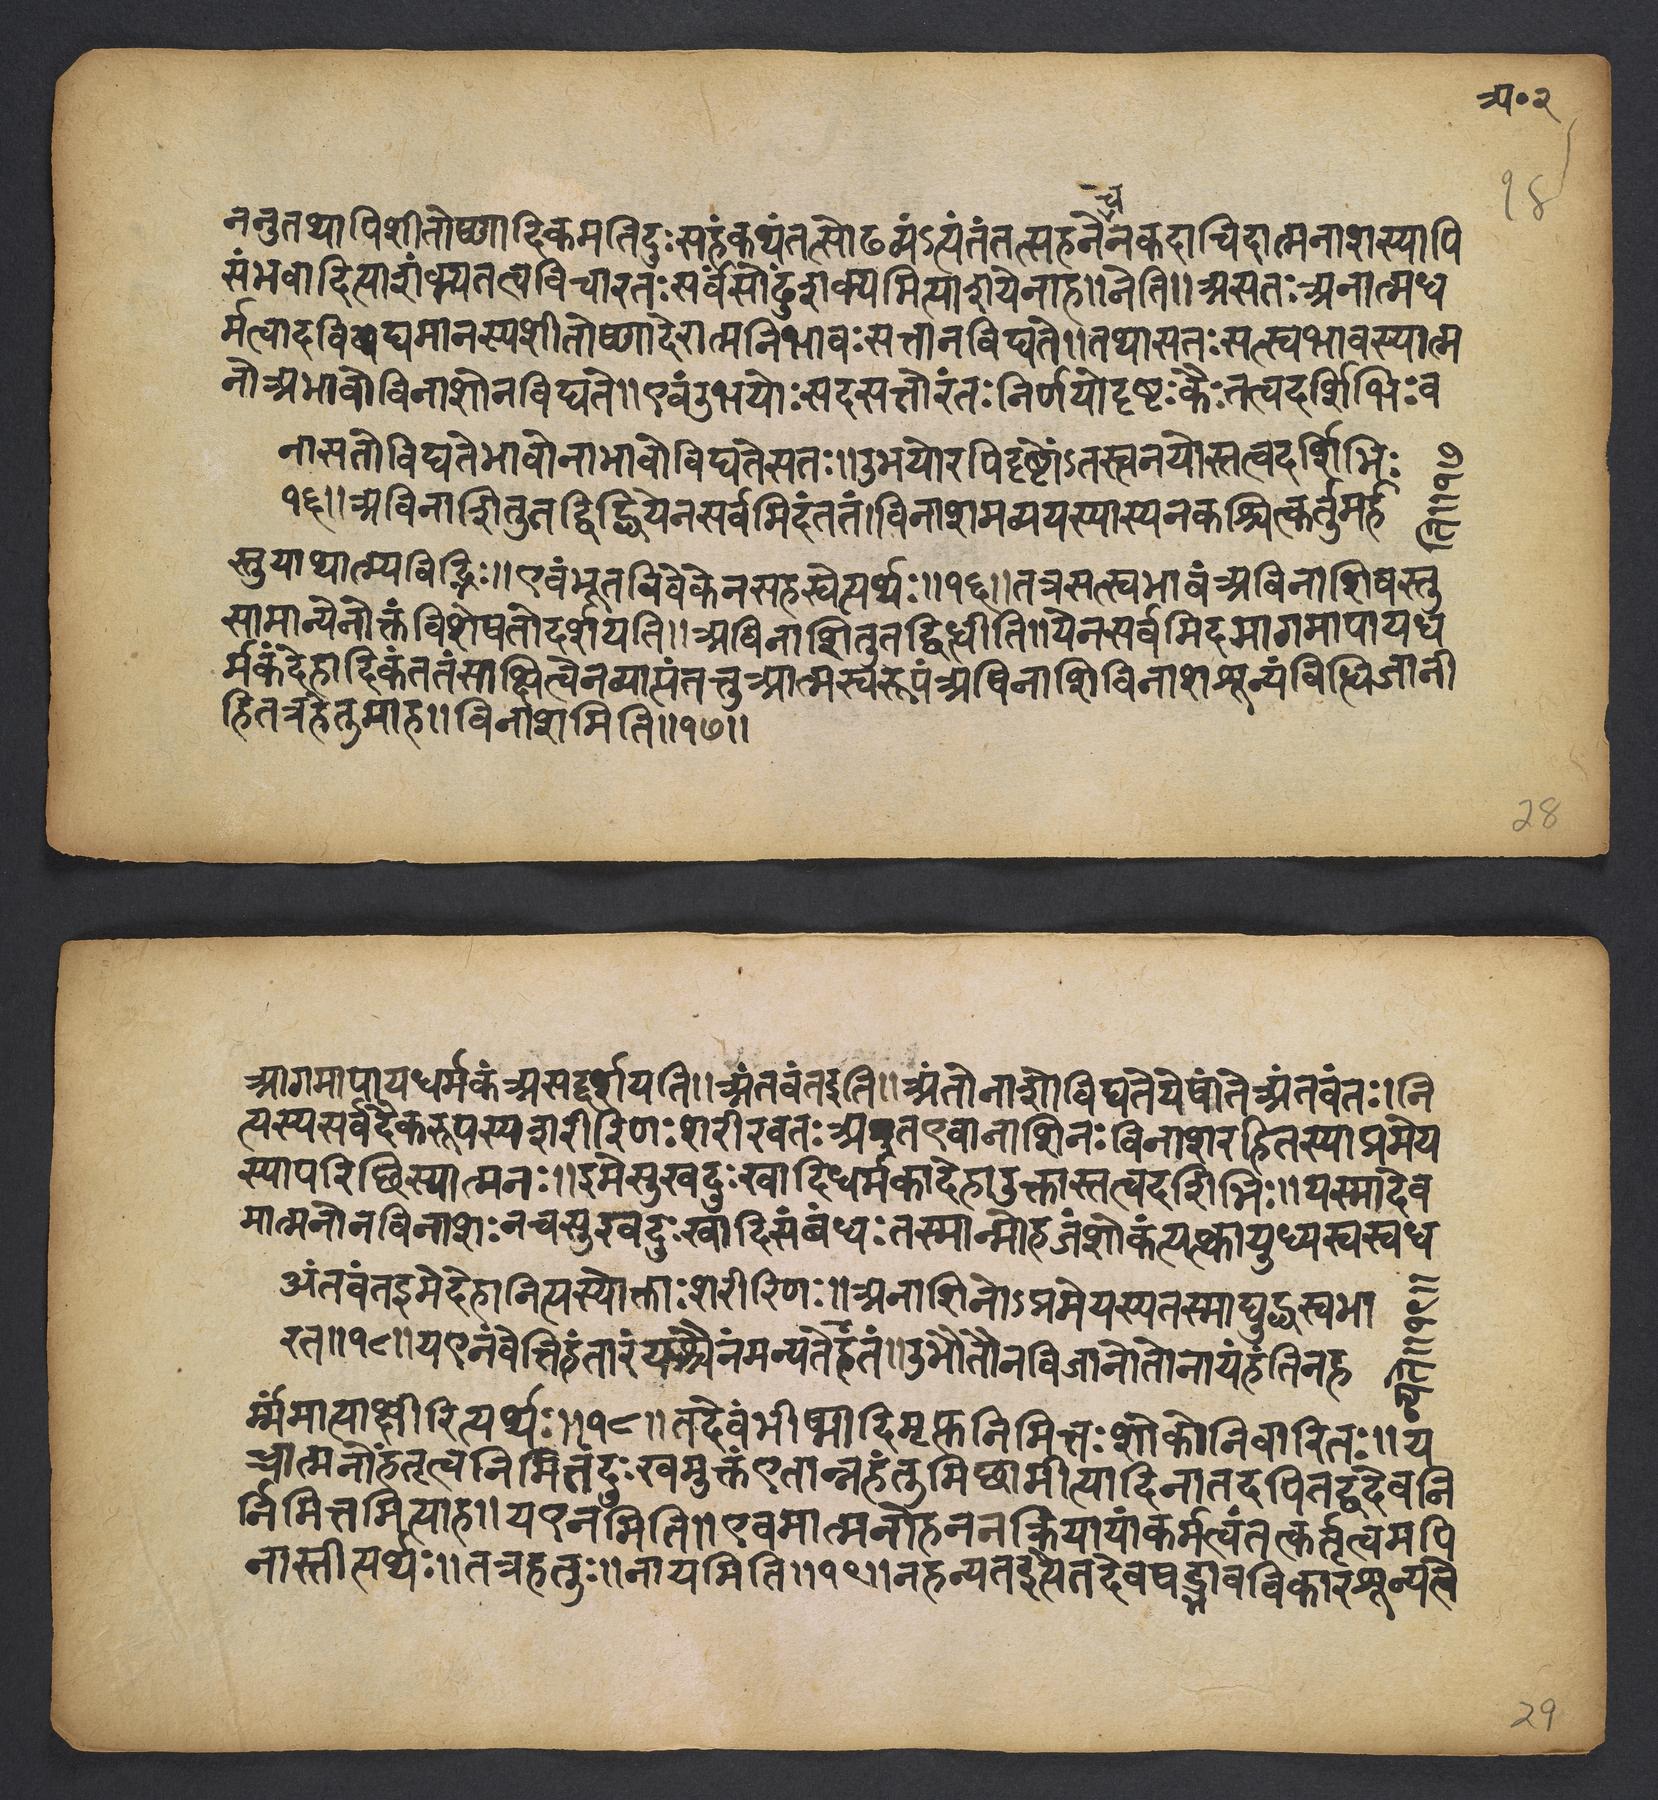 अ॰२
१४
च
ननुतथापिशीतोष्णादिकमतिदुःसहंकथंतत्सोढव्यंऽत्यंतंतत्सहनेनकदाचिदात्मनाशस्यापि
संभवादित्याशंक्यतत्वविचारतःसर्वंसोढुंशक्यमित्याशयेनाह॥नेति॥असतःअनात्मध
र्मत्वादविद्यमानस्यशीतोष्णादेरात्मनिभावःसत्तानविद्यते॥तथासतःसत्स्वभावस्यात्म
नोअभावोविनाशोनविद्यते॥एवंउभयोःसदसत्तोरंतःनिर्णयोदृष्टःकैःतत्वदर्शिभिःव
नासतोविद्यतेभावोनाभावोविद्यतेसतः॥उभयोरपिदृष्टोंऽतस्त्वनयोस्तत्वदर्शिभिः
१६॥अविनाशितुतद्विद्धियेनसर्वमिदंततं।विनाशमव्ययस्यास्यनकश्चित्कर्तुमर्ह
ति॥१७
स्तुयाथात्म्यविद्भिः॥एवंभूतविवेकेनसहस्वेत्यर्थः॥१६॥तत्रसत्स्वभावंअविनाशिवस्तु
सामान्येनोक्तंविशेषतोदर्शयति॥अविनाशितुतद्विध्धीति॥येनसर्वमिदमागमापायध
र्मकंदेहादिकंततंसाक्षित्वेनव्याप्तंतत्तुआत्मस्वरूपंअविनाशिविनाशशून्यंविध्धिजानी
हितत्रहेतुमाह॥विनाशमिति॥१७॥
28
आगमापायधर्मकंअसद्दर्शयति॥अंतवंतइति॥अंतोनाशोविद्यतेयेषांतेअंतवंतः।नि
त्यस्यसर्वदैकरूपस्यशरीरिणःशरीरवतःअतएवानाशिनःविनाशरहितस्याप्रमेय
स्यापरिछिस्यात्मनः॥इमेसुखदुःखादिधर्मकादेहाउक्तास्तत्वदर्शिभिः॥यस्मादेव
मात्मनोनविनाशःनचसुखदुःखादिसंबंधःतस्मान्मोहजंशोकंत्यत्क्त्वायुध्यस्वस्वध
अंतवंतइमेदेहानित्यस्योक्ताःशरीरिणः॥अनाशिनोऽप्रमेयस्यतस्माद्युद्धस्वभा
रत॥१८॥यएनंवेत्तिहंतारंयश्चैनंमन्यतेहतं॥उभौतौनविजानीतोनायंहंतिनह
न्यते॥१९॥
र्म्मंमात्याक्षीरित्यर्थः॥१८॥तदेवंभीष्मादिमृत्युनिमित्तःशोकोनिवारितः॥य
च्चात्मनोहंतृत्वनिमित्तंदुःखमुक्तंएतान्नहंतुमिछामीत्यादिनातदपितद्वदेवनि
र्निमित्तमित्याह॥यएनमिति॥एवमात्मनोहननक्रियायांकर्मत्वंतत्कर्तृत्वमपि
नास्तीत्यर्थः॥तत्रहेतुः॥नायमिति॥१९॥नहन्यतइत्येतदेवषड्भावविकारशून्यत्वे
29